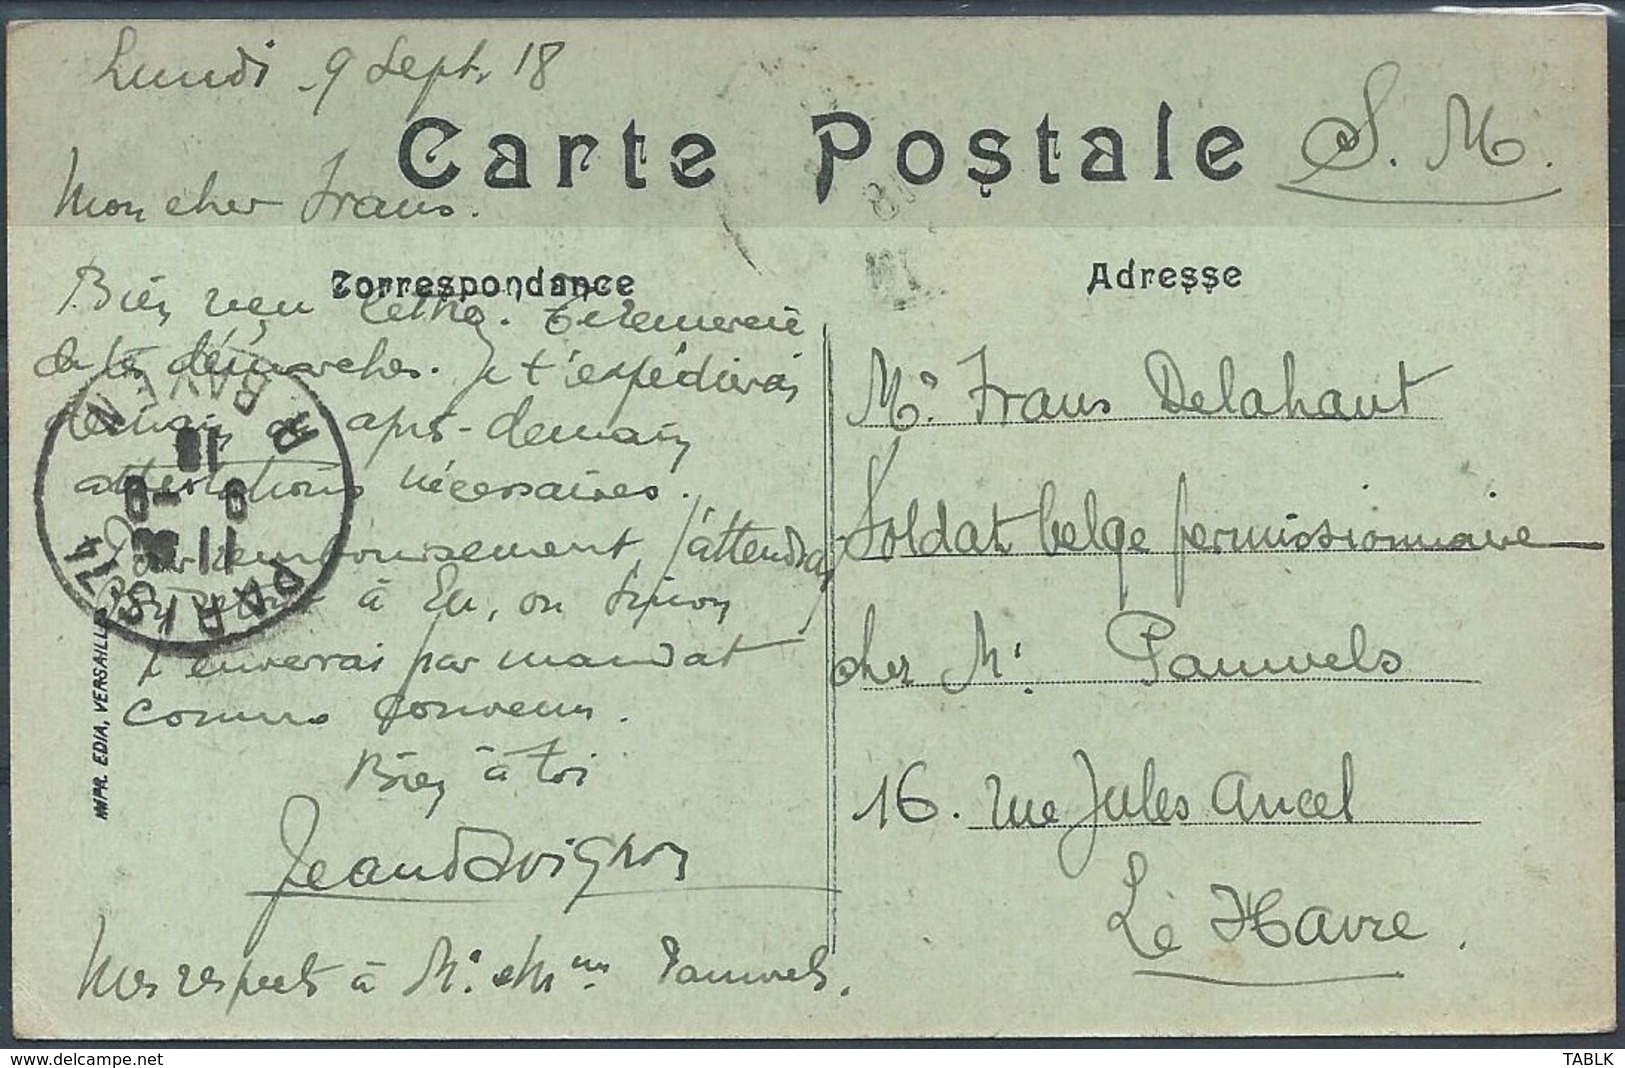 Lundi 9 Sept. 18
Carte Postale
S. M.
Mon cher Frans.
Correspondance
Bien reçu lettre. Te remercie
de tes démarches. Je t'expédierai
demain ou après-demain
attestations nécessaires.
Pour remboursement, j'attendrai
retour à Eu, ou sinon
t'enverrai par mandat
comme convenu.
Bien à toi
Jean Davignon
Mes respects à Mr. et Mme Pauwels.
Adresse
Mr. Frans Delahaut
Soldat belge permissionnaire
chez Mr. Pauwels
16. rue Jules Ancel
Le Havre.
PARIS 71
R BAYEN
11
9 - 9
18
IMPR. EDIA, VERSAILLES
TABLK